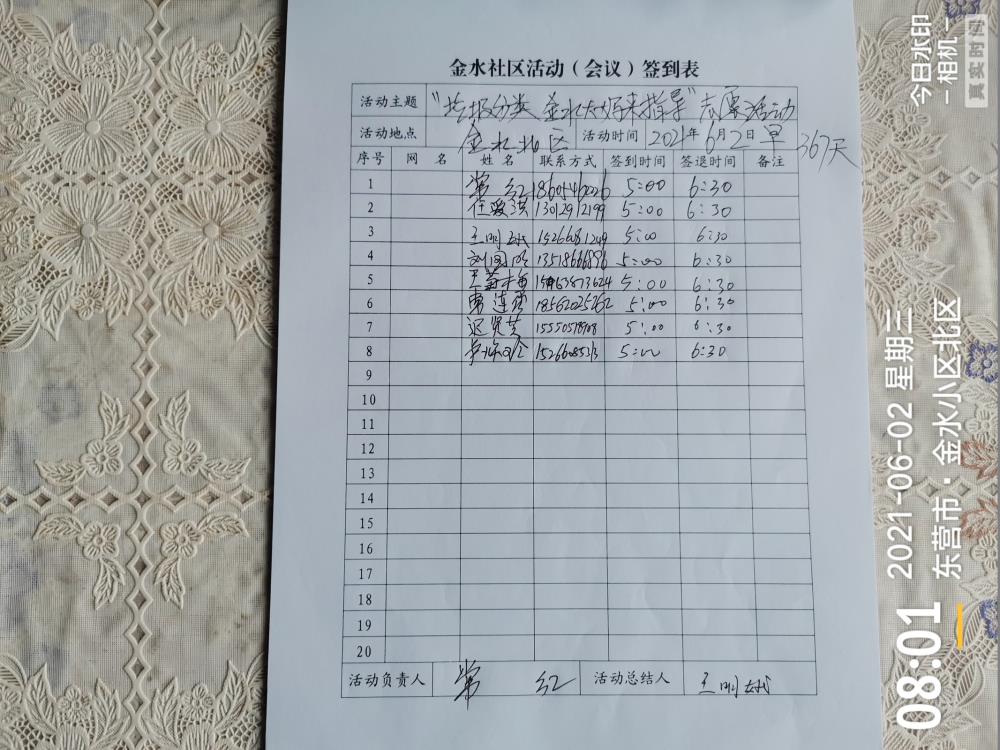 金水社区活动（会议）签到表
活动主题 "垃圾分类 金水大妈来指导"志愿活动
活动地点 金水北区 活动时间 2021年6月2日早 367天
序号 网名 姓名 联系方式 签到时间 签退时间 备注
1 常红 18605462026 5:00 6:30
2 任爱洪 13012912199 5:00 6:30
3 王明娥 15266081249 5:00 6:30
4 刘国明 13518666896 5:00 6:30
5 王 5:00 6:30
6 连 18562025262 5:00 6:30
7 迟贤芝 5:00 6:30
8 5:00 6:30
9
10
11
12
13
14
15
16
17
18
19
20
活动负责人 常红 活动总结人 王明娥
今日水印
-相机-
真实时间
08:01
2021-06-02 星期三
东营市·金水小区北区